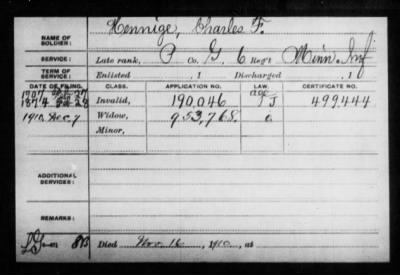 NAME OF SOLDIER: Hennige, Charles F.
SERVICE: Late rank, P Co. G, 6 Reg't Minn. Inf
TERM OF SERVICE: Enlisted , 1 Discharged , 1
DATE OF FILING. CLASS. APPLICATION NO. LAW. CERTIFICATE NO.
1907 27 age
1874 28 Invalid, 190,046 J 499.444
1910, Dec. 7 Widow, 953,768.
Minor,
ADDITIONAL SERVICES:
REMARKS:
Died Nov. 16, 1910, at